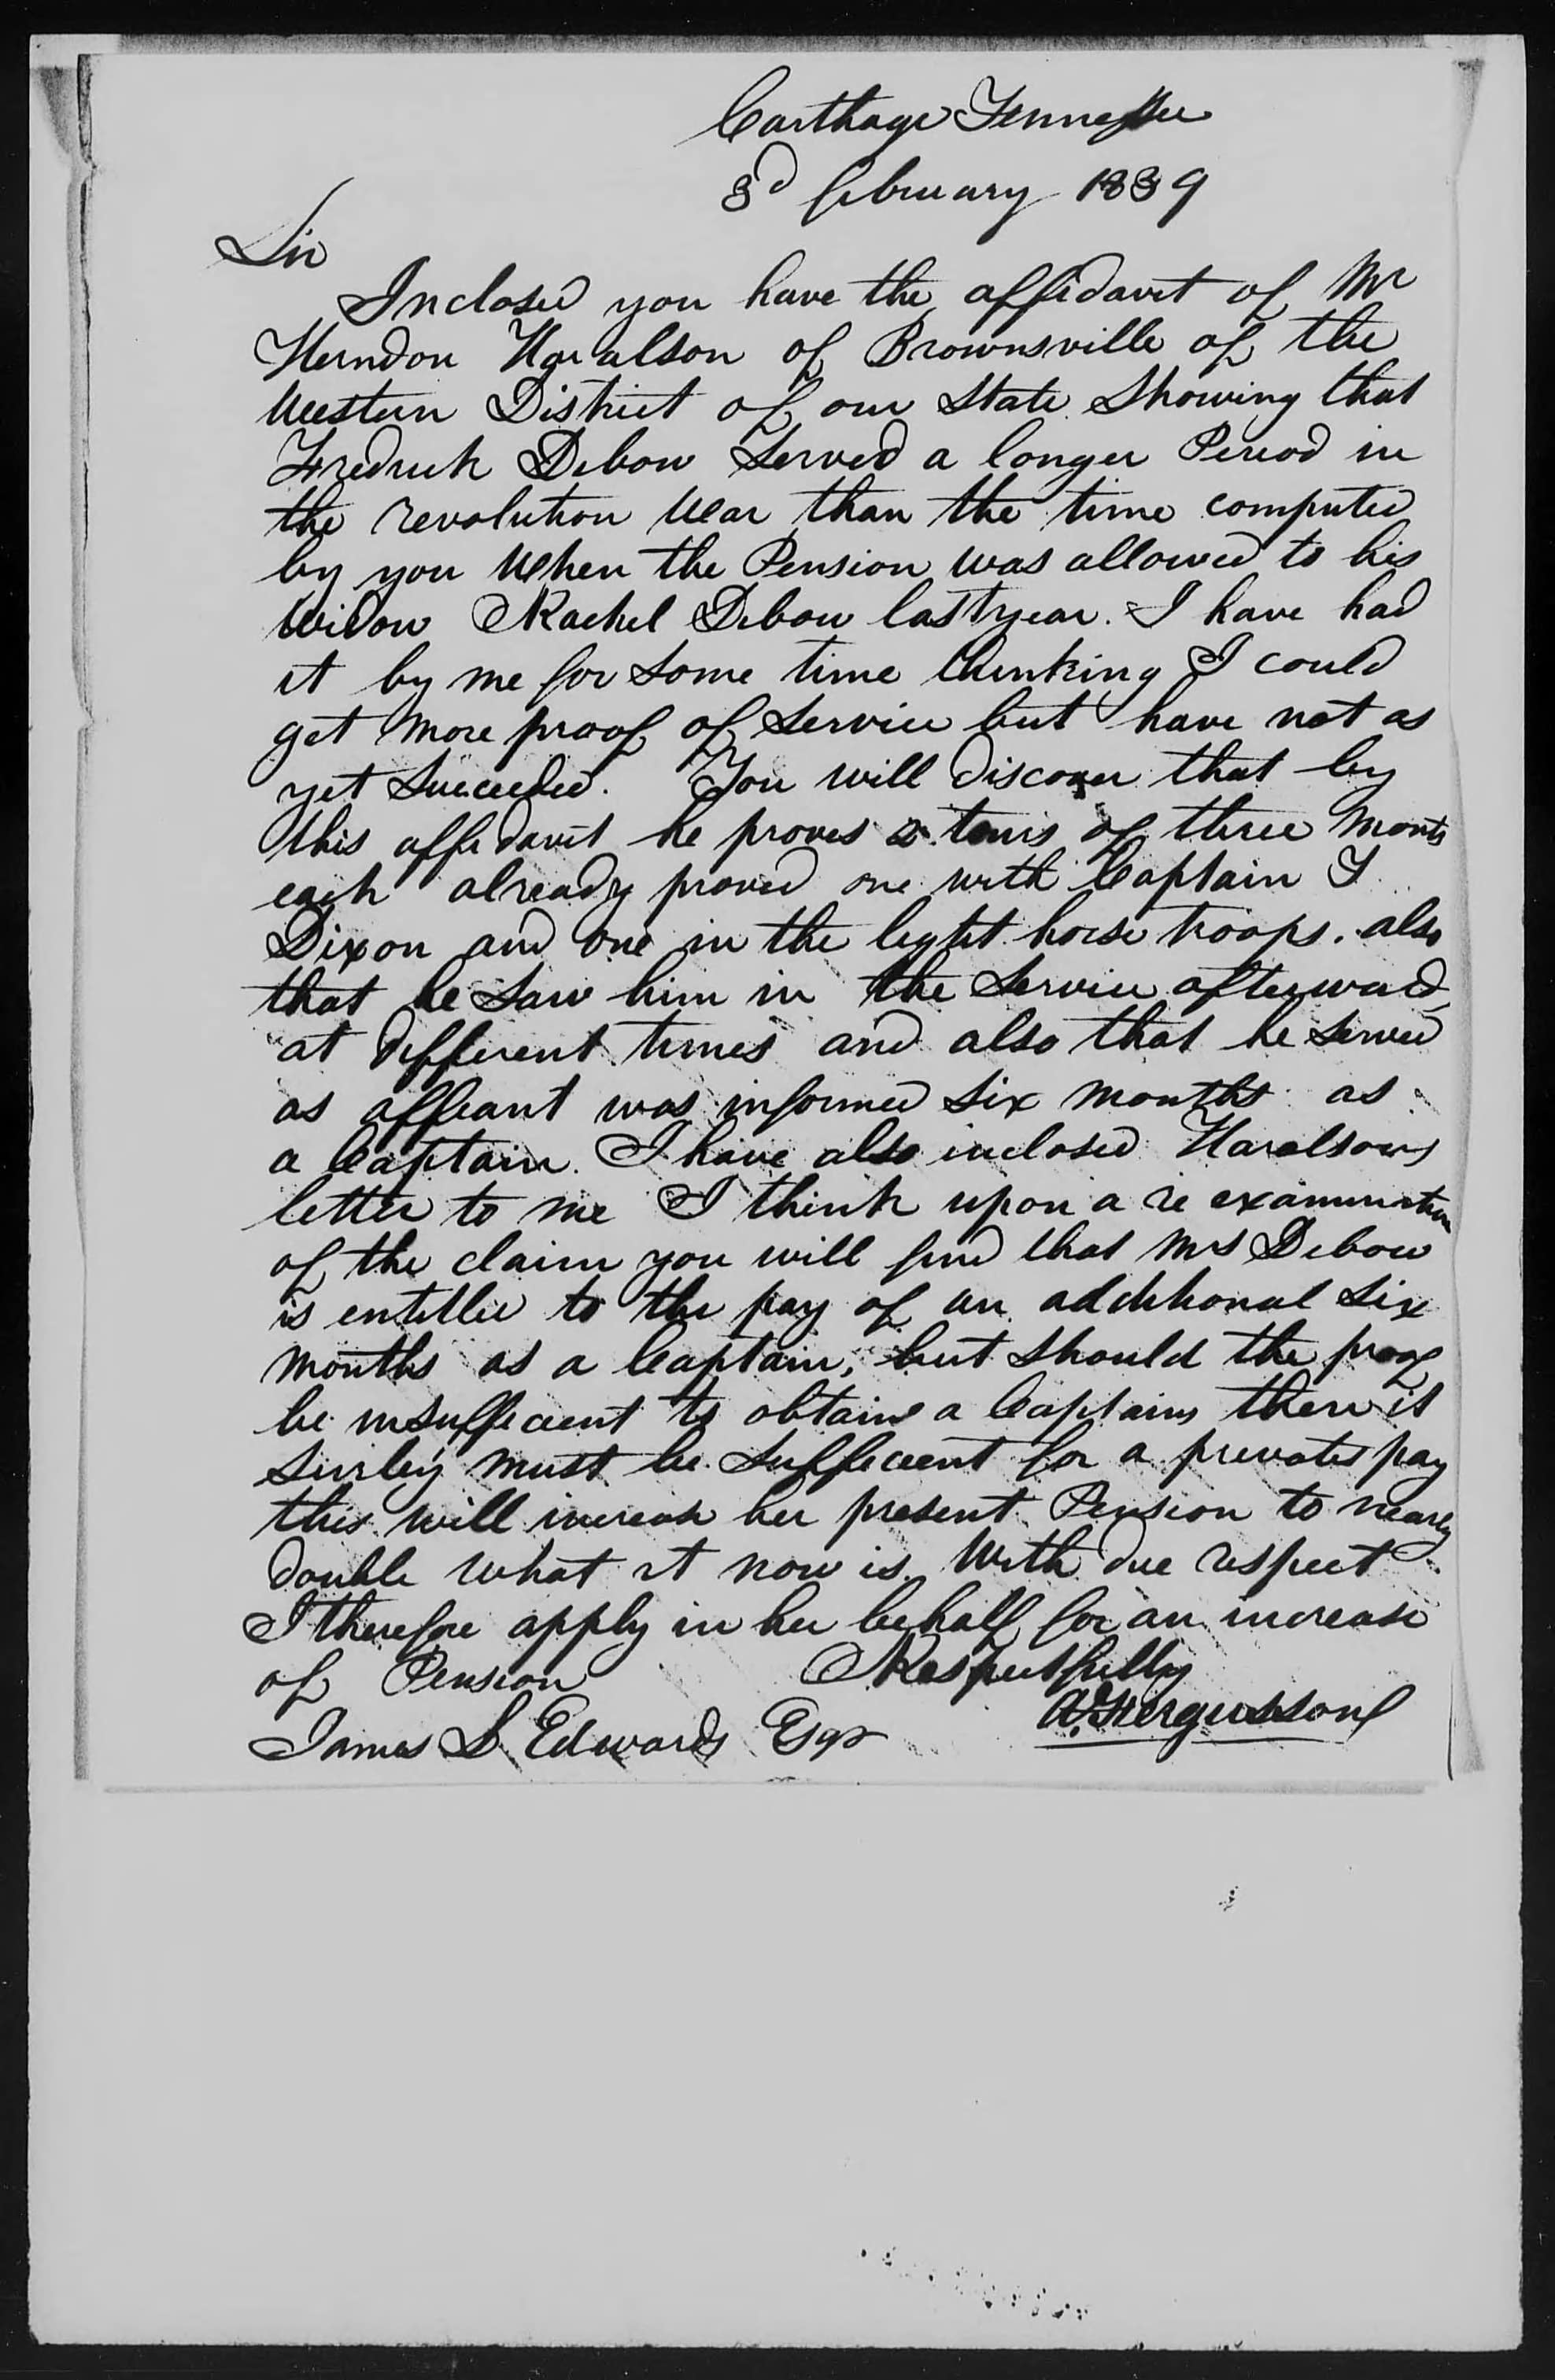 Carthage Tennessee
3d february 1839
Sir
Inclosed you have the affidavit of Mr
Herndon Haralson of Brownsville of the
Western District of our State Showing that
Fredrick Debow Served a longer Period in
the revolution War than the time computed
by you When the Pension was allowed to his
Widow Rachel Debow last year. I have had
it by me for Some time thinking I could
get more proof of Service but have not as
yet Succeeded. You will discover that by
this affidavit he proves 2 tours of three Monts
each already proved one with Captain T
Dixon and one in the light horse troops. also
that he Saw him in the Service afterwards
at different times and also that he Served
as affiant was informed Six months as
a Captain. I have also inclosed Haralsons
letter to me I think upon a re examination
of the claim you will find that Mrs Debow
is entitled to the pay of an additional Six
months as a Captain, but Should the proof
be insufficient to obtain a Captains then it
Surley must be Sufficient for a privates pay
this will increase her present Pension to nearly
double What it now is. With due respect
I therefore apply in her behalf for an increase
of Pension Respectfully
James L Edwards Esqr A. Fergusson